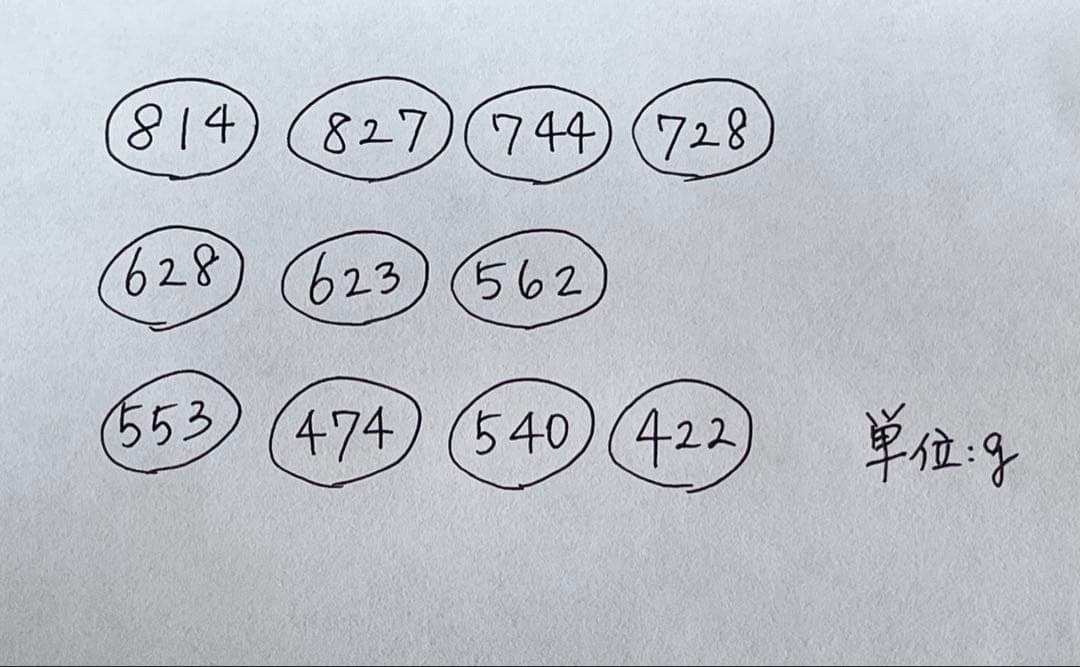 814 827 744 728
628 623 562
553 474 540 422
単位:g